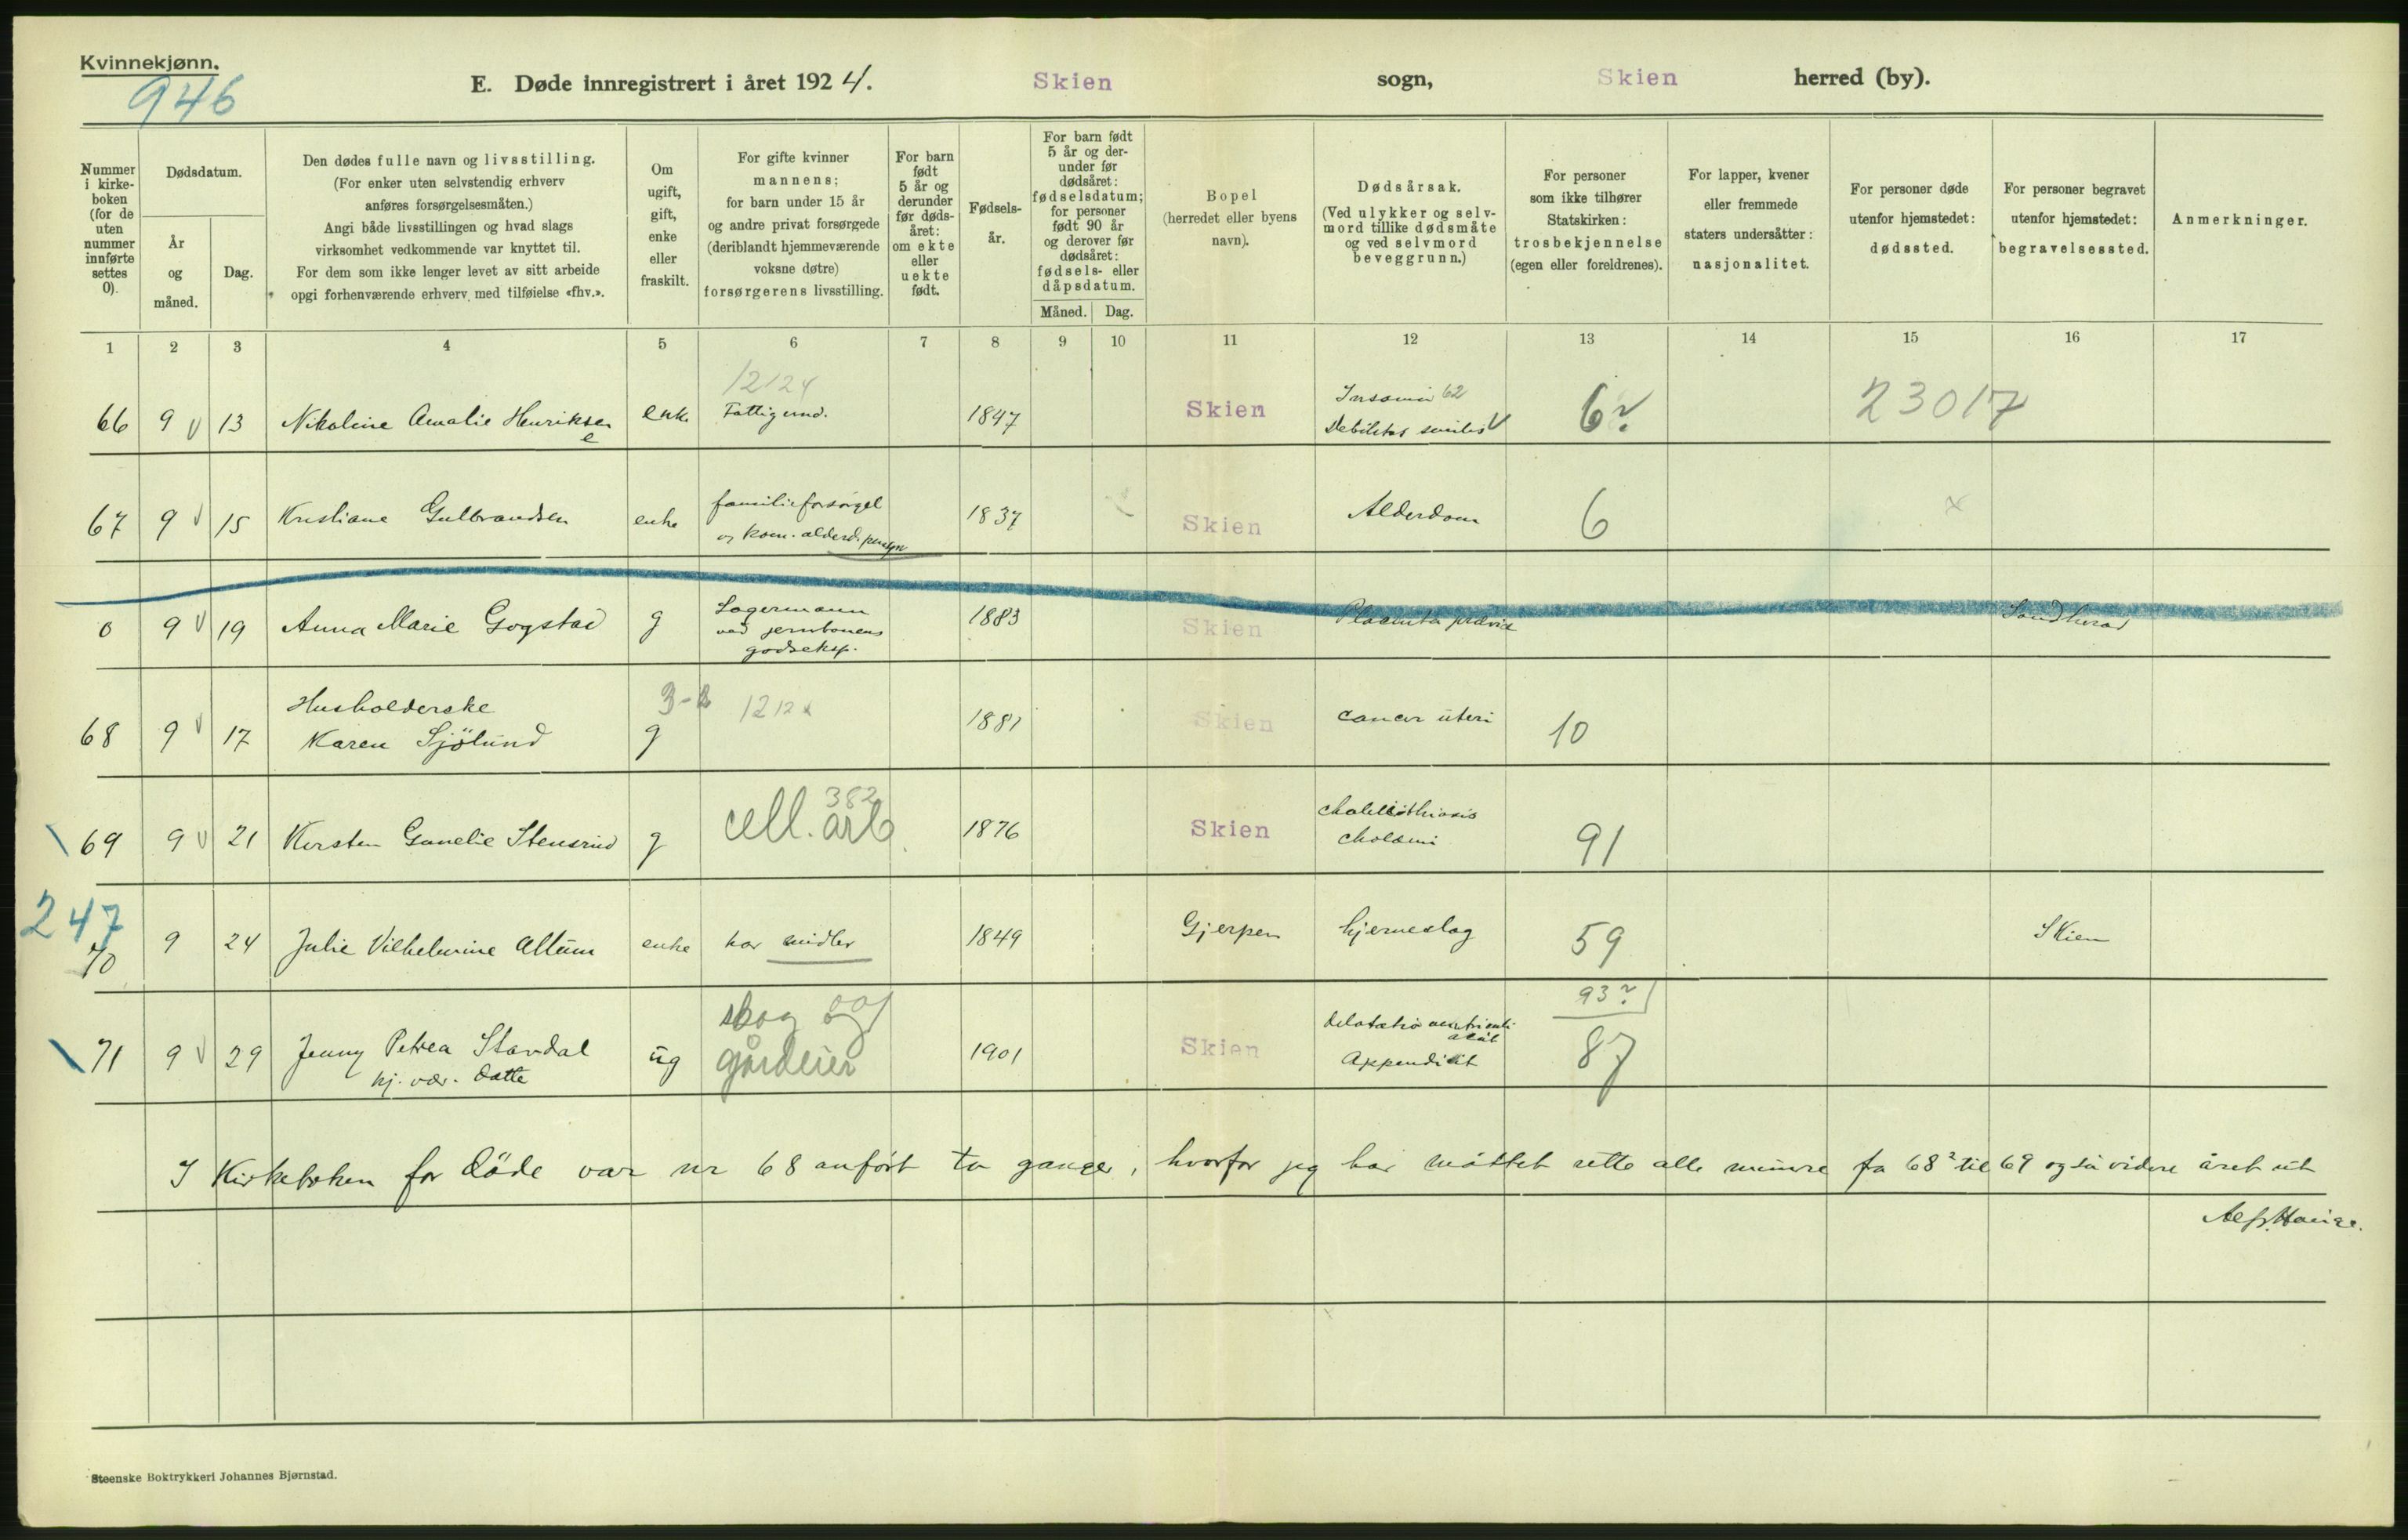 Kvinnekjønn.
946
E. Døde innregistrert i året 1924. Skien sogn, Skien herred (by).
Nummer i kirkeboken (for de uten nummer innførte settes 0).
Dødsdatum.
År og måned.
Dag.
Den dødes fulle navn og livsstilling.
(For enker uten selvstendig erhverv
anføres forsørgelsesmåten.)
Angi både livsstillingen og hvad slags
virksomhet vedkommende var knyttet til.
For dem som ikke lenger levet av sitt arbeide
opgi forhenværende erhverv med tilføielse «fhv.».
Om
ugift,
gift,
enke
eller
fraskilt.
For gifte kvinner
mannens;
for barn under 15 år
og andre privat forsørgede
(deriblandt hjemmeværende
voksne døtre)
forsørgerens livsstilling.
For barn
født
5 år og
derunder
før døds-
året:
om ekte
eller
uekte
født.
Fødsels-
år.
For barn født
5 år og der-
under før
dødsåret:
fødselsdatum;
for personer
født 90 år
og derover før
dødsåret:
fødsels- eller
dåpsdatum.
Måned. Dag.
Bopel
(herredet eller byens
navn).
Dødsårsak.
(Ved ulykker og selv-
mord tillike dødsmåte
og ved selvmord
beveggrunn.)
For personer
som ikke tilhører
Statskirken:
trosbekjennelse
(egen eller foreldrenes).
For lapper, kvener
eller fremmede
staters undersåtter:
nasjonalitet.
For personer døde
utenfor hjemstedet:
dødssted.
For personer begravet
utenfor hjemstedet:
begravelsessted.
Anmerkninger.
1 2 3 4 5 6 7 8 9 10 11 12 13 14 15 16 17
12124
66 9 13 Nikoline Amalie Henriksen enke Fattigund. 1847 Skien 62
Debilitas senilis 6? 23017
67 9 15 Kristiane Gulbrandsen enke familieforsörgel
og kom. alderd. pensjon 1837 Skien Alderdom 6 x
0 9 19 Anna Marie Gogstad g Lagermann
ved jernbanens
godseksp. 1883 Skien Placenta prævia Sandherad
68 9 17 Husholderske
Karen Sjölund g 1881 Skien cancer uteri 10
69 9 21 Kirsten Gunelie Stensrud g 382
cell. arb. 1876 Skien cholelithiasis
cholæmi 91
247
70 9 24 Julie Vilhelmine Altum enke har midler 1849 Gjerpen hjerneslag 59 Skien
93?
71 9 29 Jenny Petrea Stavdal
hj. vær. datte ug skog og
gårdeier 1901 Skien akut
Appendicit 87
I Kirkeboken for döde var nr 68 anfört to ganger, hvorfor jeg har måttet rette alle numre fra 68² til 69 og så videre året ut
Steenske Boktrykkeri Johannes Bjørnstad.